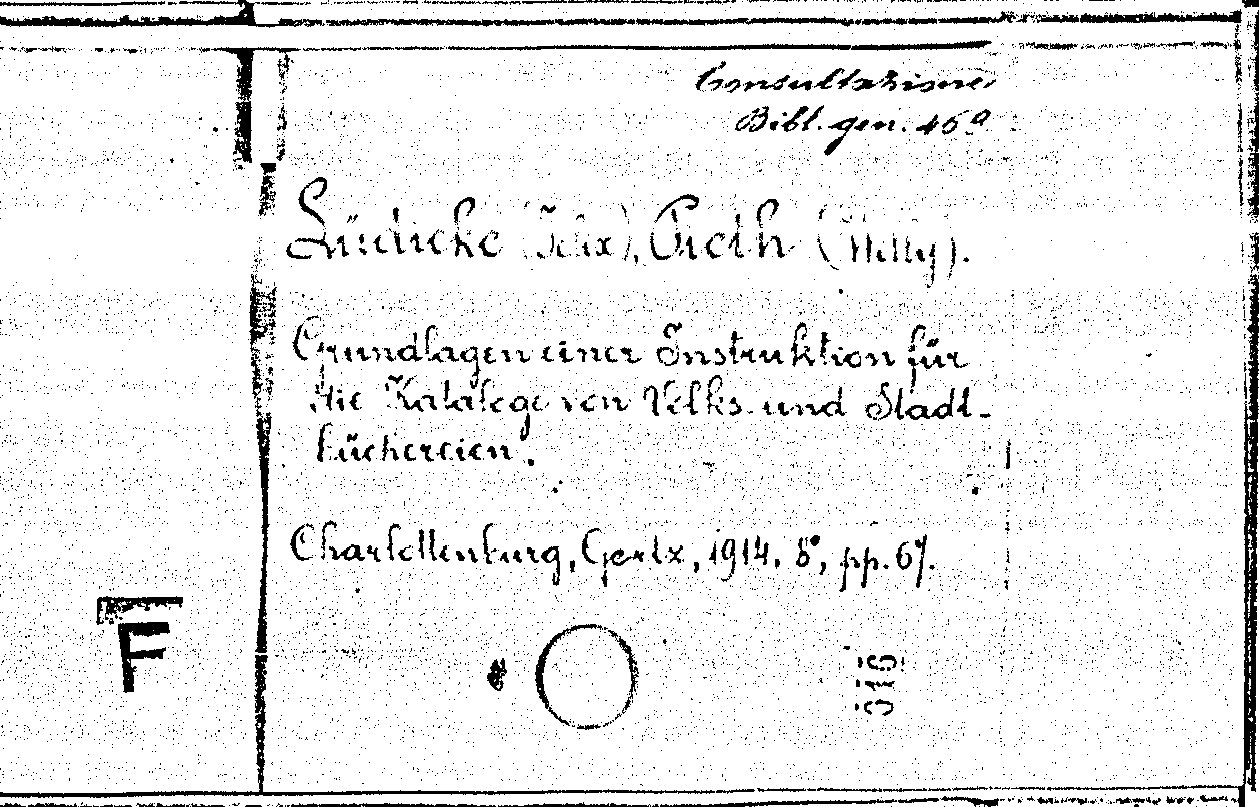 Consultazione
Bibl. gen. 46a
Lüdicke (Felix), Pieth (Willy).
Grundlagen einer Instruktion für
die Kataloge von Volks- und Stadt-
büchereien.
Charlottenburg, Gertz, 1914. 8°, pp. 67.
F